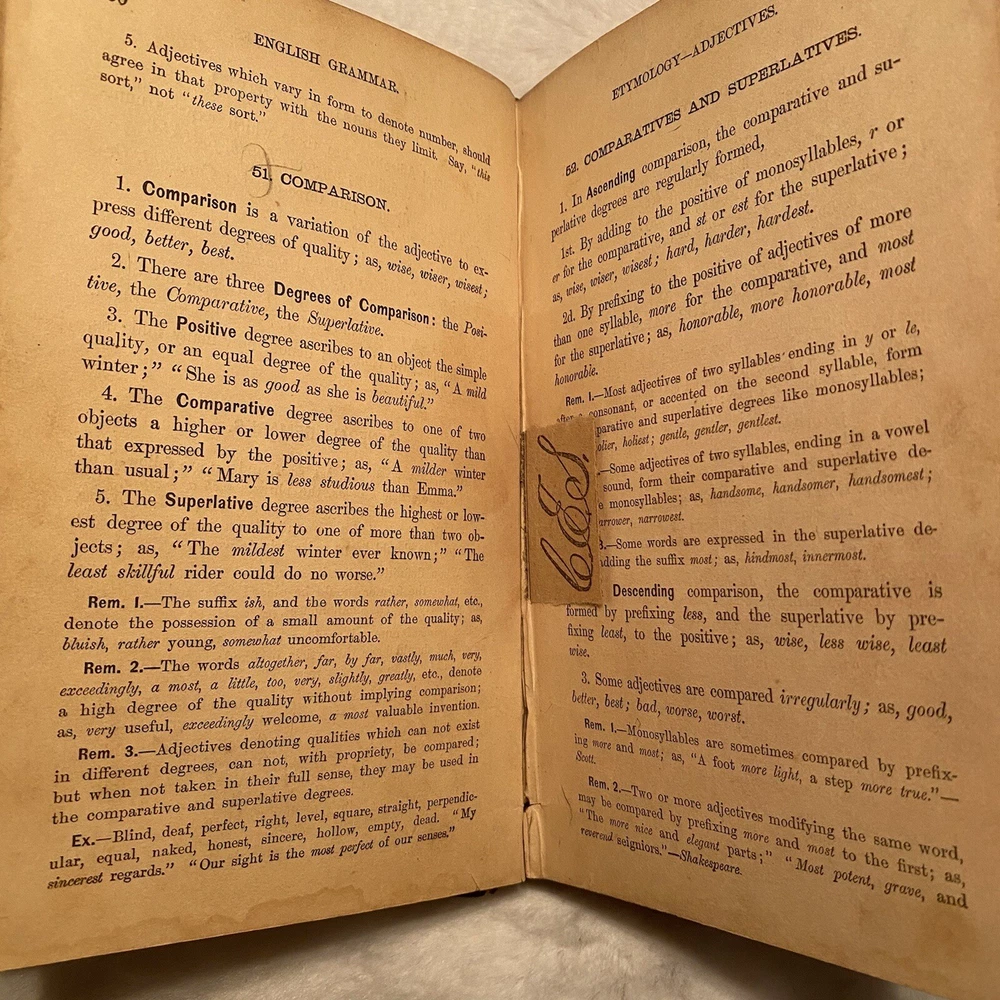 ENGLISH GRAMMAR.
5. Adjectives which vary in form to denote number, should
agree in that property with the nouns they limit. Say, "this
sort," not "these sort."
51. COMPARISON.
1. Comparison is a variation of the adjective to ex-
press different degrees of quality; as, wise, wiser, wisest;
good, better, best.
2. There are three Degrees of Comparison: the Posi-
tive, the Comparative, the Superlative.
3. The Positive degree ascribes to an object the simple
quality, or an equal degree of the quality; as, "A mild
winter;" "She is as good as she is beautiful."
4. The Comparative degree ascribes to one of two
objects a higher or lower degree of the quality than
that expressed by the positive; as, "A milder winter
than usual;" "Mary is less studious than Emma."
5. The Superlative degree ascribes the highest or low-
est degree of the quality to one of more than two ob-
jects; as, "The mildest winter ever known;" "The
least skillful rider could do no worse."
Rem. 1.—The suffix ish, and the words rather, somewhat, etc.,
denote the possession of a small amount of the quality; as,
bluish, rather young, somewhat uncomfortable.
Rem. 2.—The words altogether, far, by far, vastly, much, very,
exceedingly, a most, a little, too, very, slightly, greatly, etc., denote
a high degree of the quality without implying comparison;
as, very useful, exceedingly welcome, a most valuable invention.
Rem. 3.—Adjectives denoting qualities which can not exist
in different degrees, can not, with propriety, be compared;
but when not taken in their full sense, they may be used in
the comparative and superlative degrees.
Ex.—Blind, deaf, perfect, right, level, square, straight, perpendic-
ular, equal, naked, honest, sincere, hollow, empty, dead. "My
sincerest regards." "Our sight is the most perfect of our senses."
ETYMOLOGY—ADJECTIVES.
52. COMPARATIVES AND SUPERLATIVES.
1. In Ascending comparison, the comparative and su-
perlative degrees are regularly formed,
1st. By adding to the positive of monosyllables, r or
er for the comparative, and st or est for the superlative;
as, wise, wiser, wisest; hard, harder, hardest.
2d. By prefixing to the positive of adjectives of more
than one syllable, more for the comparative, and most
for the superlative; as, honorable, more honorable, most
honorable.
Rem. 1.—Most adjectives of two syllables ending in y or le,
consonant, or accented on the second syllable, form
parative and superlative degrees like monosyllables;
olier, holiest; gentle, gentler, gentlest.
—Some adjectives of two syllables, ending in a vowel
sound, form their comparative and superlative de-
monosyllables; as, handsome, handsomer, handsomest;
arrower, narrowest.
—Some words are expressed in the superlative de-
dding the suffix most; as, hindmost, innermost.
C.E.S.
Descending comparison, the comparative is
formed by prefixing less, and the superlative by pre-
fixing least, to the positive; as, wise, less wise, least
wise.
3. Some adjectives are compared irregularly; as, good,
better, best; bad, worse, worst.
Rem. 1.—Monosyllables are sometimes compared by prefix-
ing more and most; as, "A foot more light, a step more true."—
Scott.
Rem. 2.—Two or more adjectives modifying the same word,
may be compared by prefixing more and most to the first; as,
"The more nice and elegant parts;" "Most potent, grave, and
reverend seigniors."—Shakespeare.